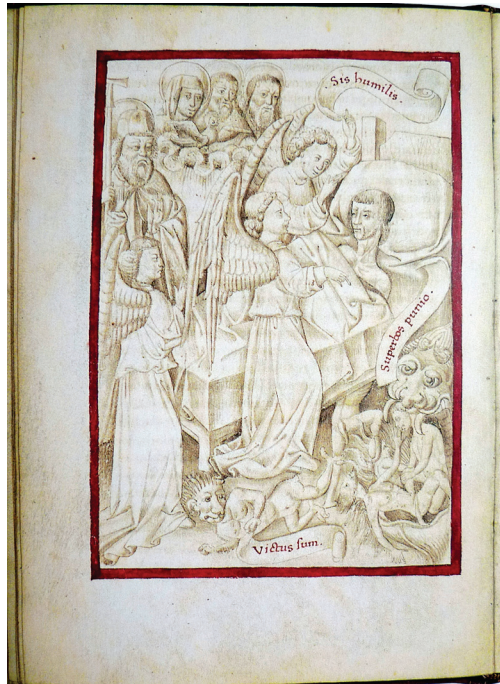 Sis humilis.
Superbos punio.
Victus sum.